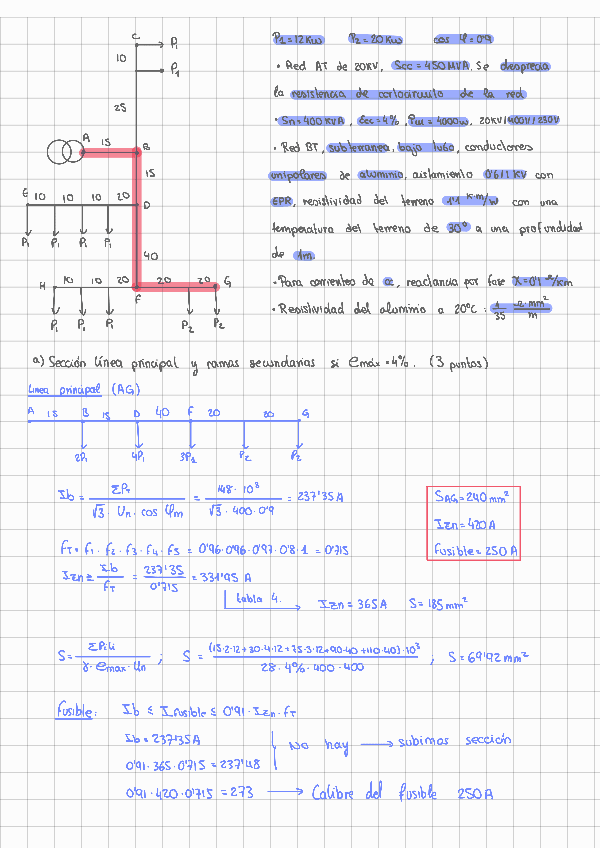 P1 = 12 Kw P2 = 20 Kw cos φ = 0'9
• Red AT de 20KV, Scc = 450 MVA. Se desprecia
la resistencia de cortocircuito de la red
• Sn = 400 KVA, Ecc = 4%, Pcu = 4000w, 20KV/400V/230V
• Red BT, subterranea, bajo tubo, conductores
unipolares de aluminio, aislamiento 0'6/1 KV con
EPR, resistividad del terreno 1'1 K·m/w con una
temperatura del terreno de 30º a una profundidad
de 1m
• Para corrientes de cc, reactancia por fase X=0'1 Ω/km
• Resistividad del aluminio a 20ºC : 1/35 Ω·mm²/m
C
10
P1
P1
25
A 15 B
15
E 10 10 10 20 D
P1 P1 P1 P1
40
H 10 10 20 F 20 20 G
P1 P1 P1 P2 P2
a) Sección línea principal y ramas secundarias si emáx = 4%. (3 puntos)
Linea principal (AG)
A 15 B 15 D 40 F 20 20 G
2P1 4P1 3P1 P2 P2
Ib = ΣPi / √3 · Un · cos φm = 148 · 10³ / √3 · 400 · 0'9 = 237'35 A
SAG = 240 mm²
Izn = 420 A
Fusible = 250 A
fT = f1 · f2 · f3 · f4 · f5 = 0'96 · 0'96 · 0'97 · 0'8 · 1 = 0'715
Izn ≥ Ib / fT = 237'35 / 0'715 = 331'95 A
tabla 4. → Izn = 365 A S = 185 mm²
S = ΣPi·Li / γ · emax · Un ; S = (15·2·12+30·4·12+75·3·12+90·40+110·40)·10³ / 28 · 4% · 400 · 400 ; S = 69'92 mm²
Fusible: Ib ≤ Ifusible ≤ 0'91 · Izn · fT
Ib = 237'35 A
0'91 · 365 · 0'715 = 237'48
No hay → subimos sección
0'91 · 420 · 0'715 = 273 → Calibre del fusible 250 A